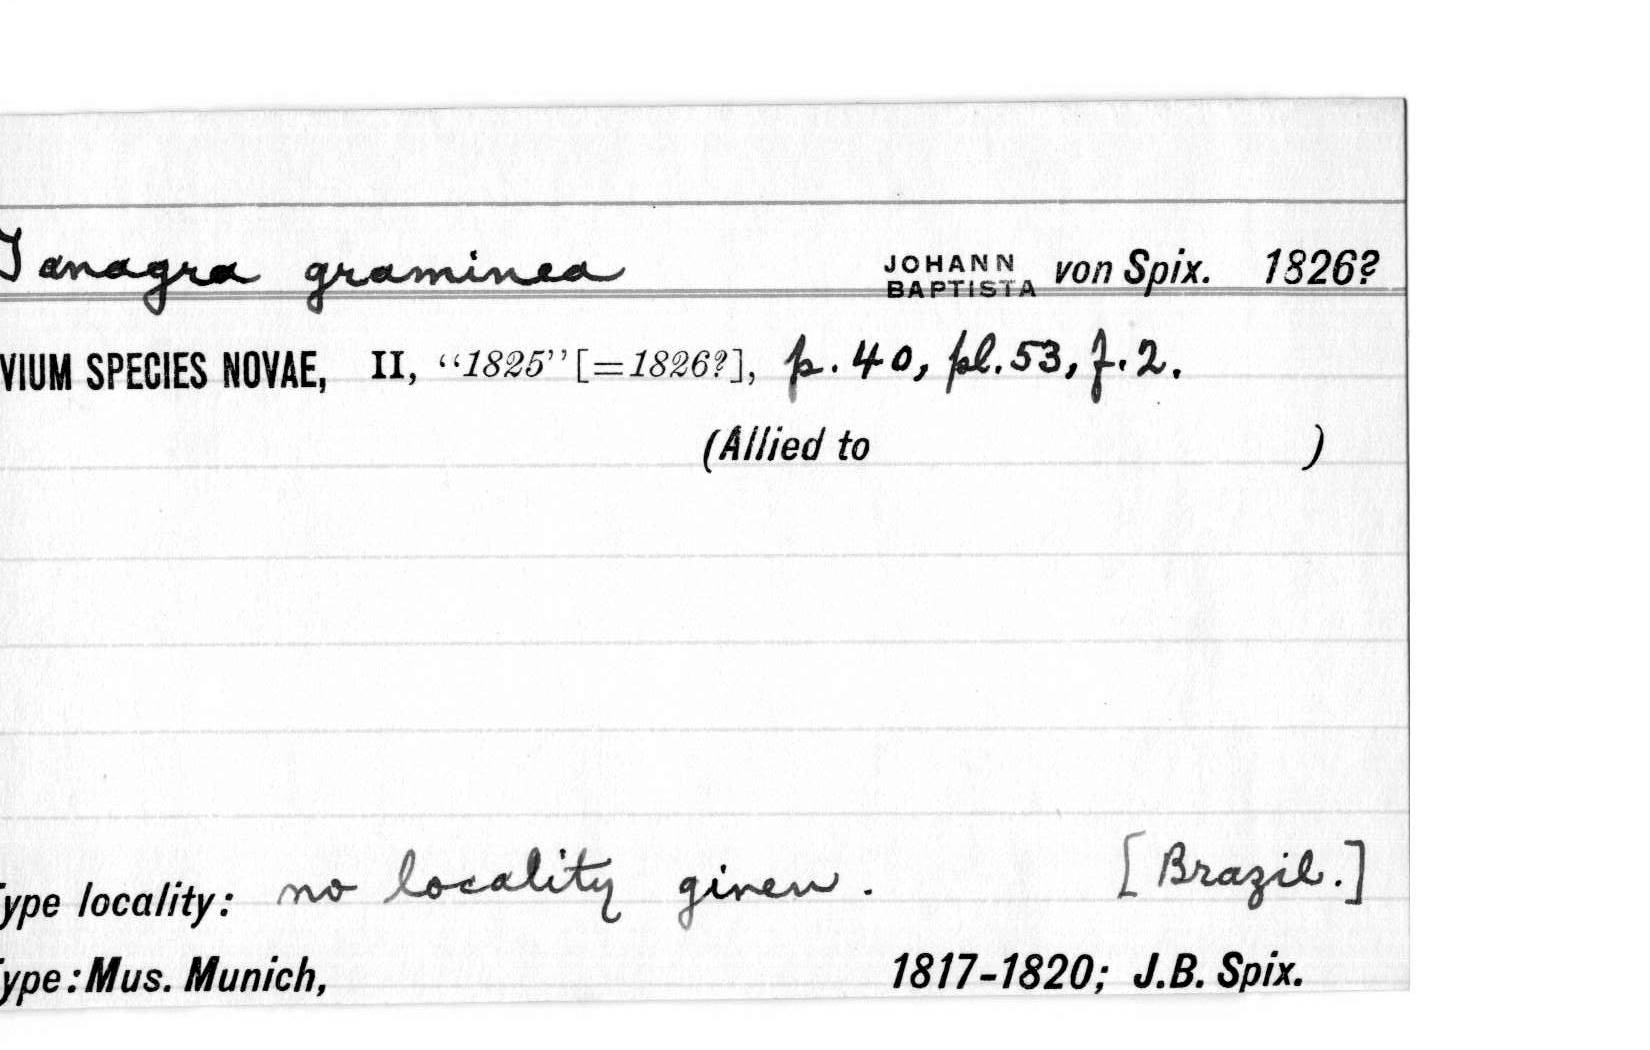 Tanagra graminea JOHANN BAPTISTA von Spix. 1826?
VIUM SPECIES NOVAE, II, “1825” [=1826?], p. 40, pl. 53, f. 2.
(Allied to )
ype locality: no locality given. [Brazil.]
ype: Mus. Munich, 1817-1820; J.B. Spix.